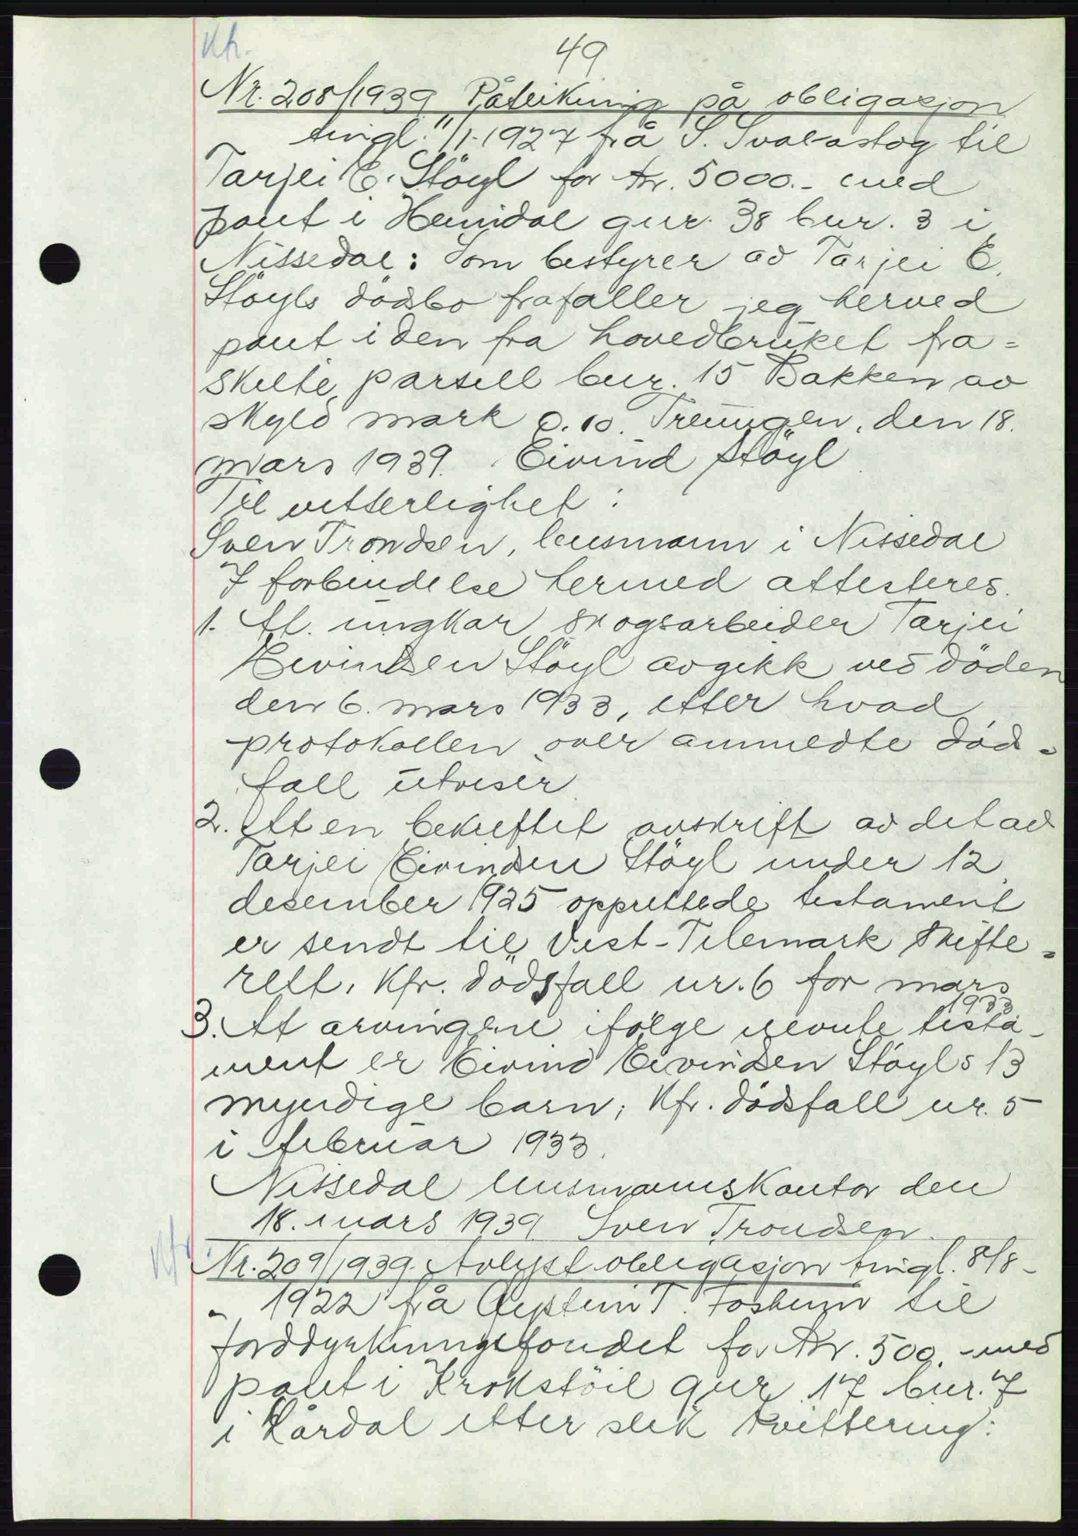 Kfr.
49
Nr. 208/1939 Påteikning på obligasjon
tingl. 11/1-1927 frå S. Svalastog til
Tarjei E. Støyl for kr. 5000.- med
pant i Heimdal gnr. 38 bnr. 3 i
Nissedal: Som bestyrer av Tarjei E.
Støyls dødsbo frafaller jeg herved
pant i den fra hovedbruket fra=
skilte parsell bnr. 15 Bakken av
skyld mark 0.10. Treungen, den 18.
mars 1939. Eivind Støyl
Til vitterlighet:
Sven Trondsen, lensmann i Nissedal
I forbindelse hermed attesteres.
1. At ungkar skogsarbeider Tarjei
Eivindsen Støyl avgikk ved døden
den 6. mars 1933, etter hvad
protokollen over anmeldte død=
fall utviser
2. At en bekreftet avskrift av det av
Tarjei Eivindsen Støyl under 12.
desember 1925 opprettede testament
er sendt til Vest-Telemark skifte=
rett. Kfr. dødsfall nr. 6 for mars
1933.
3. At arvingene ifølge nevnte testa-
ment er Eivind Eivindsen Støyls 13
myndige barn; Kfr. dødsfall nr. 5
i februar 1933.
Nissedal lensmannskontor den
18. mars 1939. Sven Trondsen.
Kfr.
Nr. 209/1939. Avlyst obligasjon tingl. 8/8-
- 1922 frå Øystein T. Fosheim til
Jorddyrkningsfondet for kr. 500.- med
pant i Krokstöil gnr. 17 bnr. 7
i Lårdal etter slik kvittering: